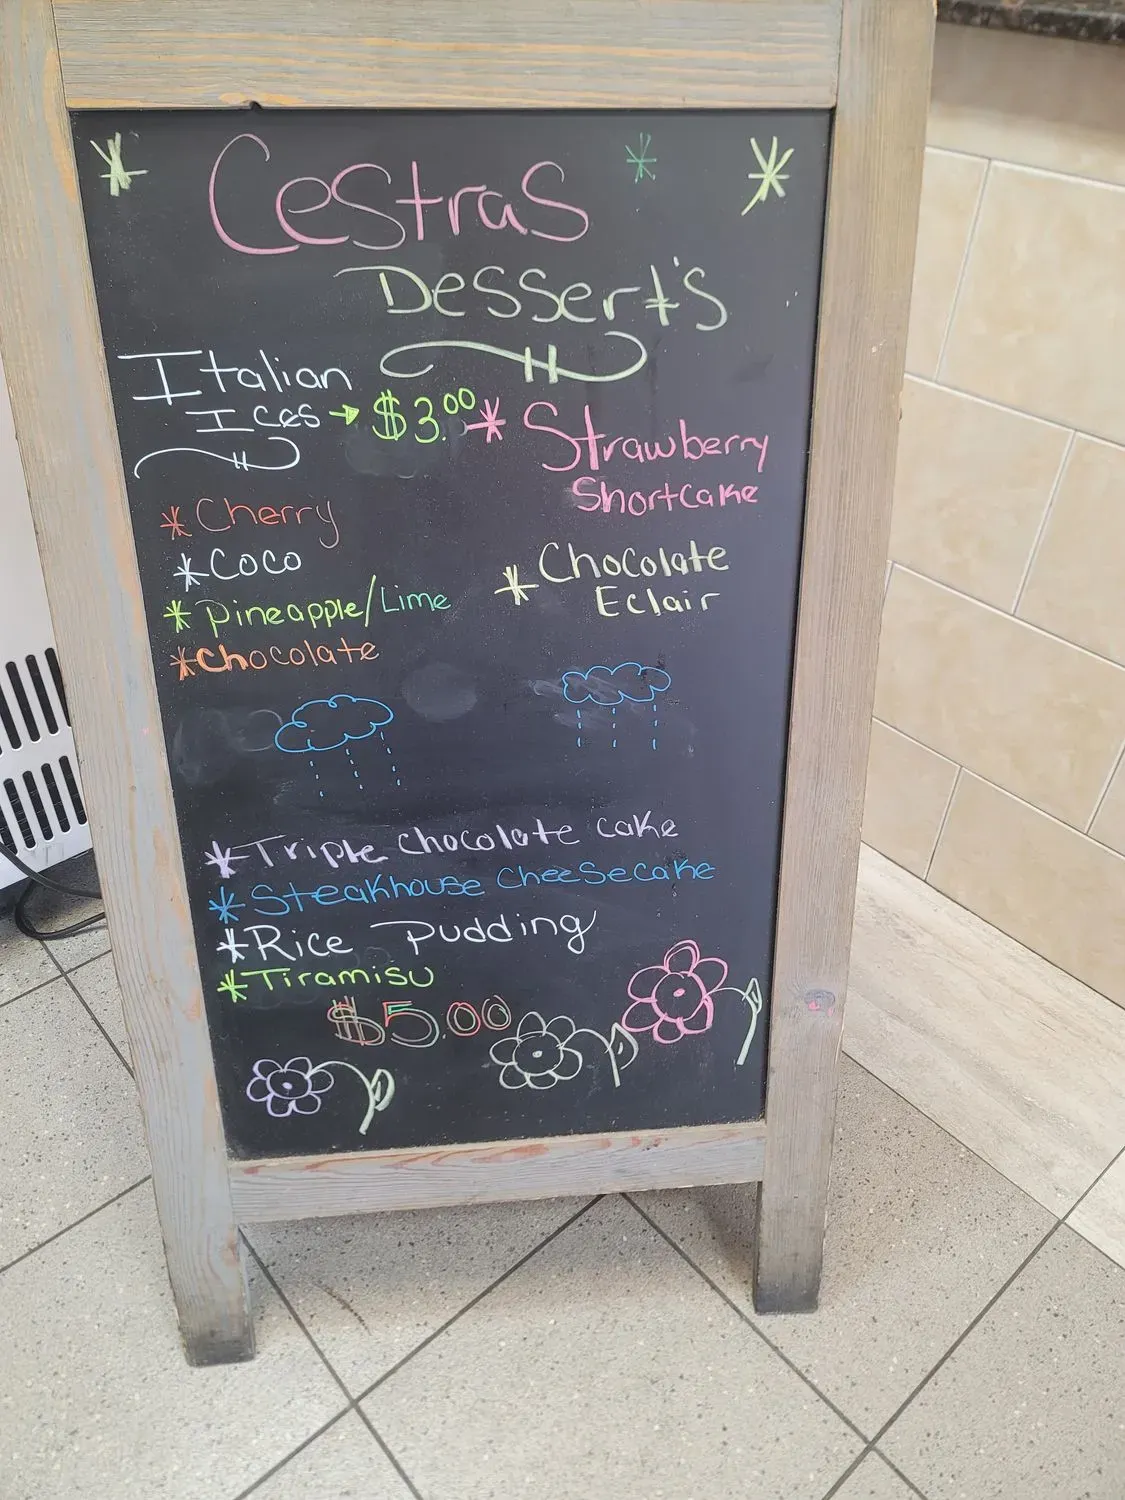 Cestras
Dessert's
Italian
Ices → $3.00
* Cherry
* Coco
* Pineapple/Lime
* Chocolate
* Strawberry
Shortcake
* Chocolate
Eclair
* Triple chocolate cake
* Steakhouse cheesecake
* Rice Pudding
* Tiramisu
$5.00